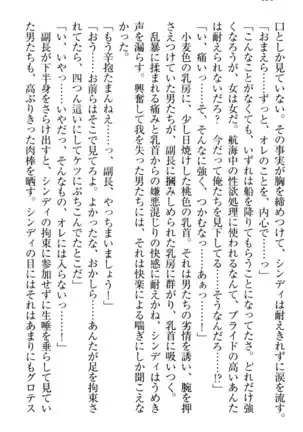 口としか見ていない。その事実が胸を締めつけ、シンディは耐えきれずに涙を流す。
「おまえら……ずっと、オレのことを、内心で……っ」
「こんなことがなくても、いずれは船を降りてもらうことになったさ。どれだけ強
くなろうが、女は女だ。航海中の性欲処理に使われるなんて、プライドの高いあんた
は耐えられないだろ？　今だって俺たちを見下してる……そうなんだろ……!?」
「い、痛いっ……そ、そんなに強く、つかむなっ……あぁっ……！」
小麦色の乳房に、少し日焼けした桃色の乳首。それは男たちの劣情を誘い、腕を押
さえつけていた男たちが、副長に掴みしめられた乳房に群がり、乳首を舐めまわす。
乱暴に揉まれる痛みと乳首からの嫌悪混じりの快感に耐えかね、シンディはうめき
声を漏らす。興奮して我を失った男たちには、それは快楽による喘ぎにしか聞こえな
かった。
「もう辛抱たまんねえ……っ　副長、やっちまいましょう！」
「おう……お前らはそこで見てろよ。よかったな、おかしら……あんたが足を拘束さ
れてたら、四つん這いにしてケツにぶちこんでたとこだ」
「い、いやっ……いやだっ、そんなもの、オレには入らないっ……！」
副長が下半身をさらけ出すと、シンディの拘束に参加せずに生唾を垂らして見てい
た男たちも、高ぶりきった肉棒を晒す。シンディの目にはそれはあまりにもグロテス